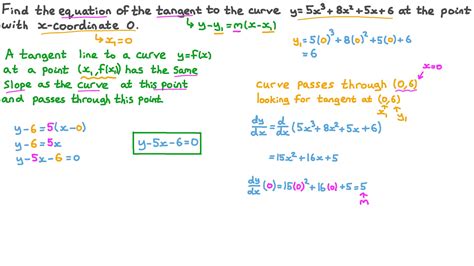 Find the equation of the tangent to the curve y=5x³+8x²+5x+6 at the point
with x-coordinate 0.
x₁=0
y-y₁=m(x-x₁)
A tangent line to a curve y=f(x)
at a point (x₁,f(x₁)) has the Same
Slope as the curve at this point
and passes through this point
y-6=5(x-0)
y-6=5x
y-5x-6=0
y-5x-6=0
y₁=5(0)³+8(0)²+5(0)+6
=6
x=0
curve passes through (0,6)
looking for tangent at (0,6)
x₁ y₁
dy/dx=d/dx(5x³+8x²+5x+6)
=15x²+16x+5
dy/dx(0)=15(0)²+16(0)+5=5
m